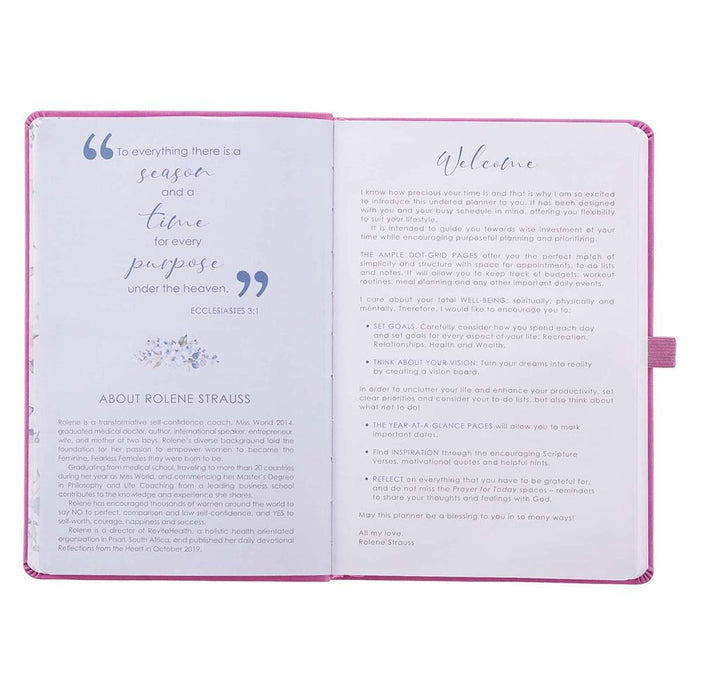 “To everything there is a
season
and a
time
for every
purpose
under the heaven.”
ECCLESIASTES 3:1
ABOUT ROLENE STRAUSS
Rolene is a transformative self-confidence coach, Miss World 2014,
graduated medical doctor, author, international speaker, entrepreneur,
wife, and mother of two boys. Rolene’s diverse background laid the
foundation for her passion to empower women to become the
Feminine, Fearless Females they were born to be.
Graduating from medical school, traveling to more than 20 countries
during her year as Miss World, and commencing her Master’s Degree
in Philosophy and Life Coaching from a leading business school
contributes to the knowledge and experience she shares.
Rolene has encouraged thousands of women around the world to
say NO to perfect, comparison and low self-confidence, and YES to
self-worth, courage, happiness and success.
Rolene is a director of RevitaHealth, a holistic health orientated
organization in Paarl, South Africa, and published her daily devotional
Reflections from the Heart in October 2019.
Welcome
I know how precious your time is and that is why I am so excited
to introduce this undated planner to you. It has been designed
with you and your busy schedule in mind, offering you flexibility
to suit your lifestyle.
It is intended to guide you towards wise investment of your
time while encouraging purposeful planning and prioritizing.
THE AMPLE DOT-GRID PAGES offer you the perfect match of
simplicity and structure with space for appointments, to-do lists
and notes. It will allow you to keep track of budgets, workout
routines, meal planning and any other important daily events.
I care about your total WELL-BEING: spiritually, physically and
mentally. Therefore, I would like to encourage you to:
• SET GOALS. Carefully consider how you spend each day
and set goals for every aspect of your life: Recreation,
Relationships, Health and Wealth.
• THINK ABOUT YOUR VISION: Turn your dreams into reality
by creating a vision board.
In order to unclutter your life and enhance your productivity, set
clear priorities and consider your to-do lists, but also think about
what not to do!
• THE YEAR-AT-A-GLANCE PAGES will allow you to mark
important dates.
• Find INSPIRATION through the encouraging Scripture
verses, motivational quotes and helpful hints.
• REFLECT on everything that you have to be grateful for,
and do not miss the Prayer for Today spaces – reminders
to share your thoughts and feelings with God.
May this planner be a blessing to you in so many ways!
All my love,
Rolene Strauss